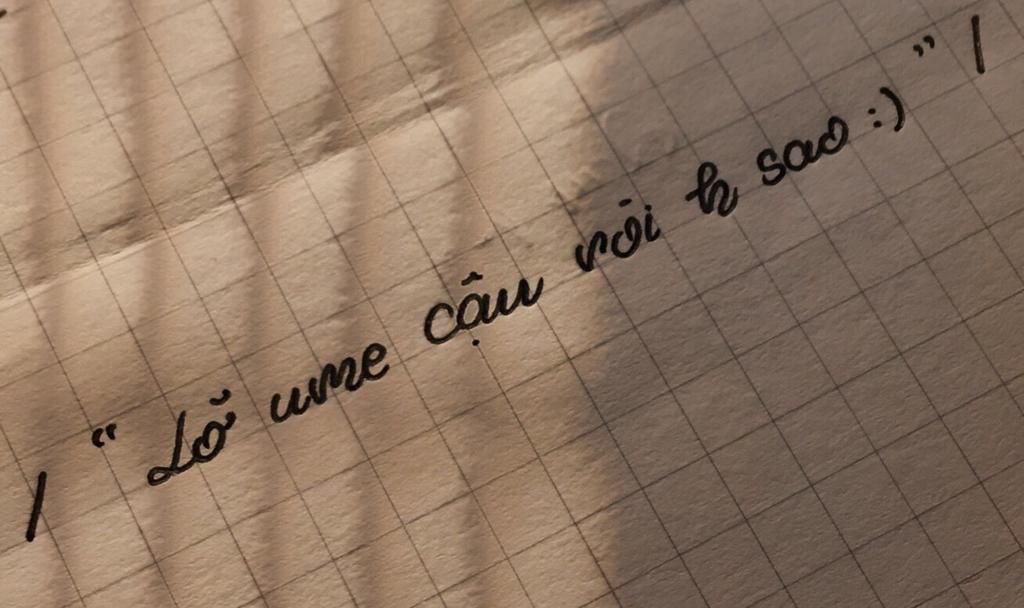 / “ Lỡ ume cậu rồi h sao :) ” /